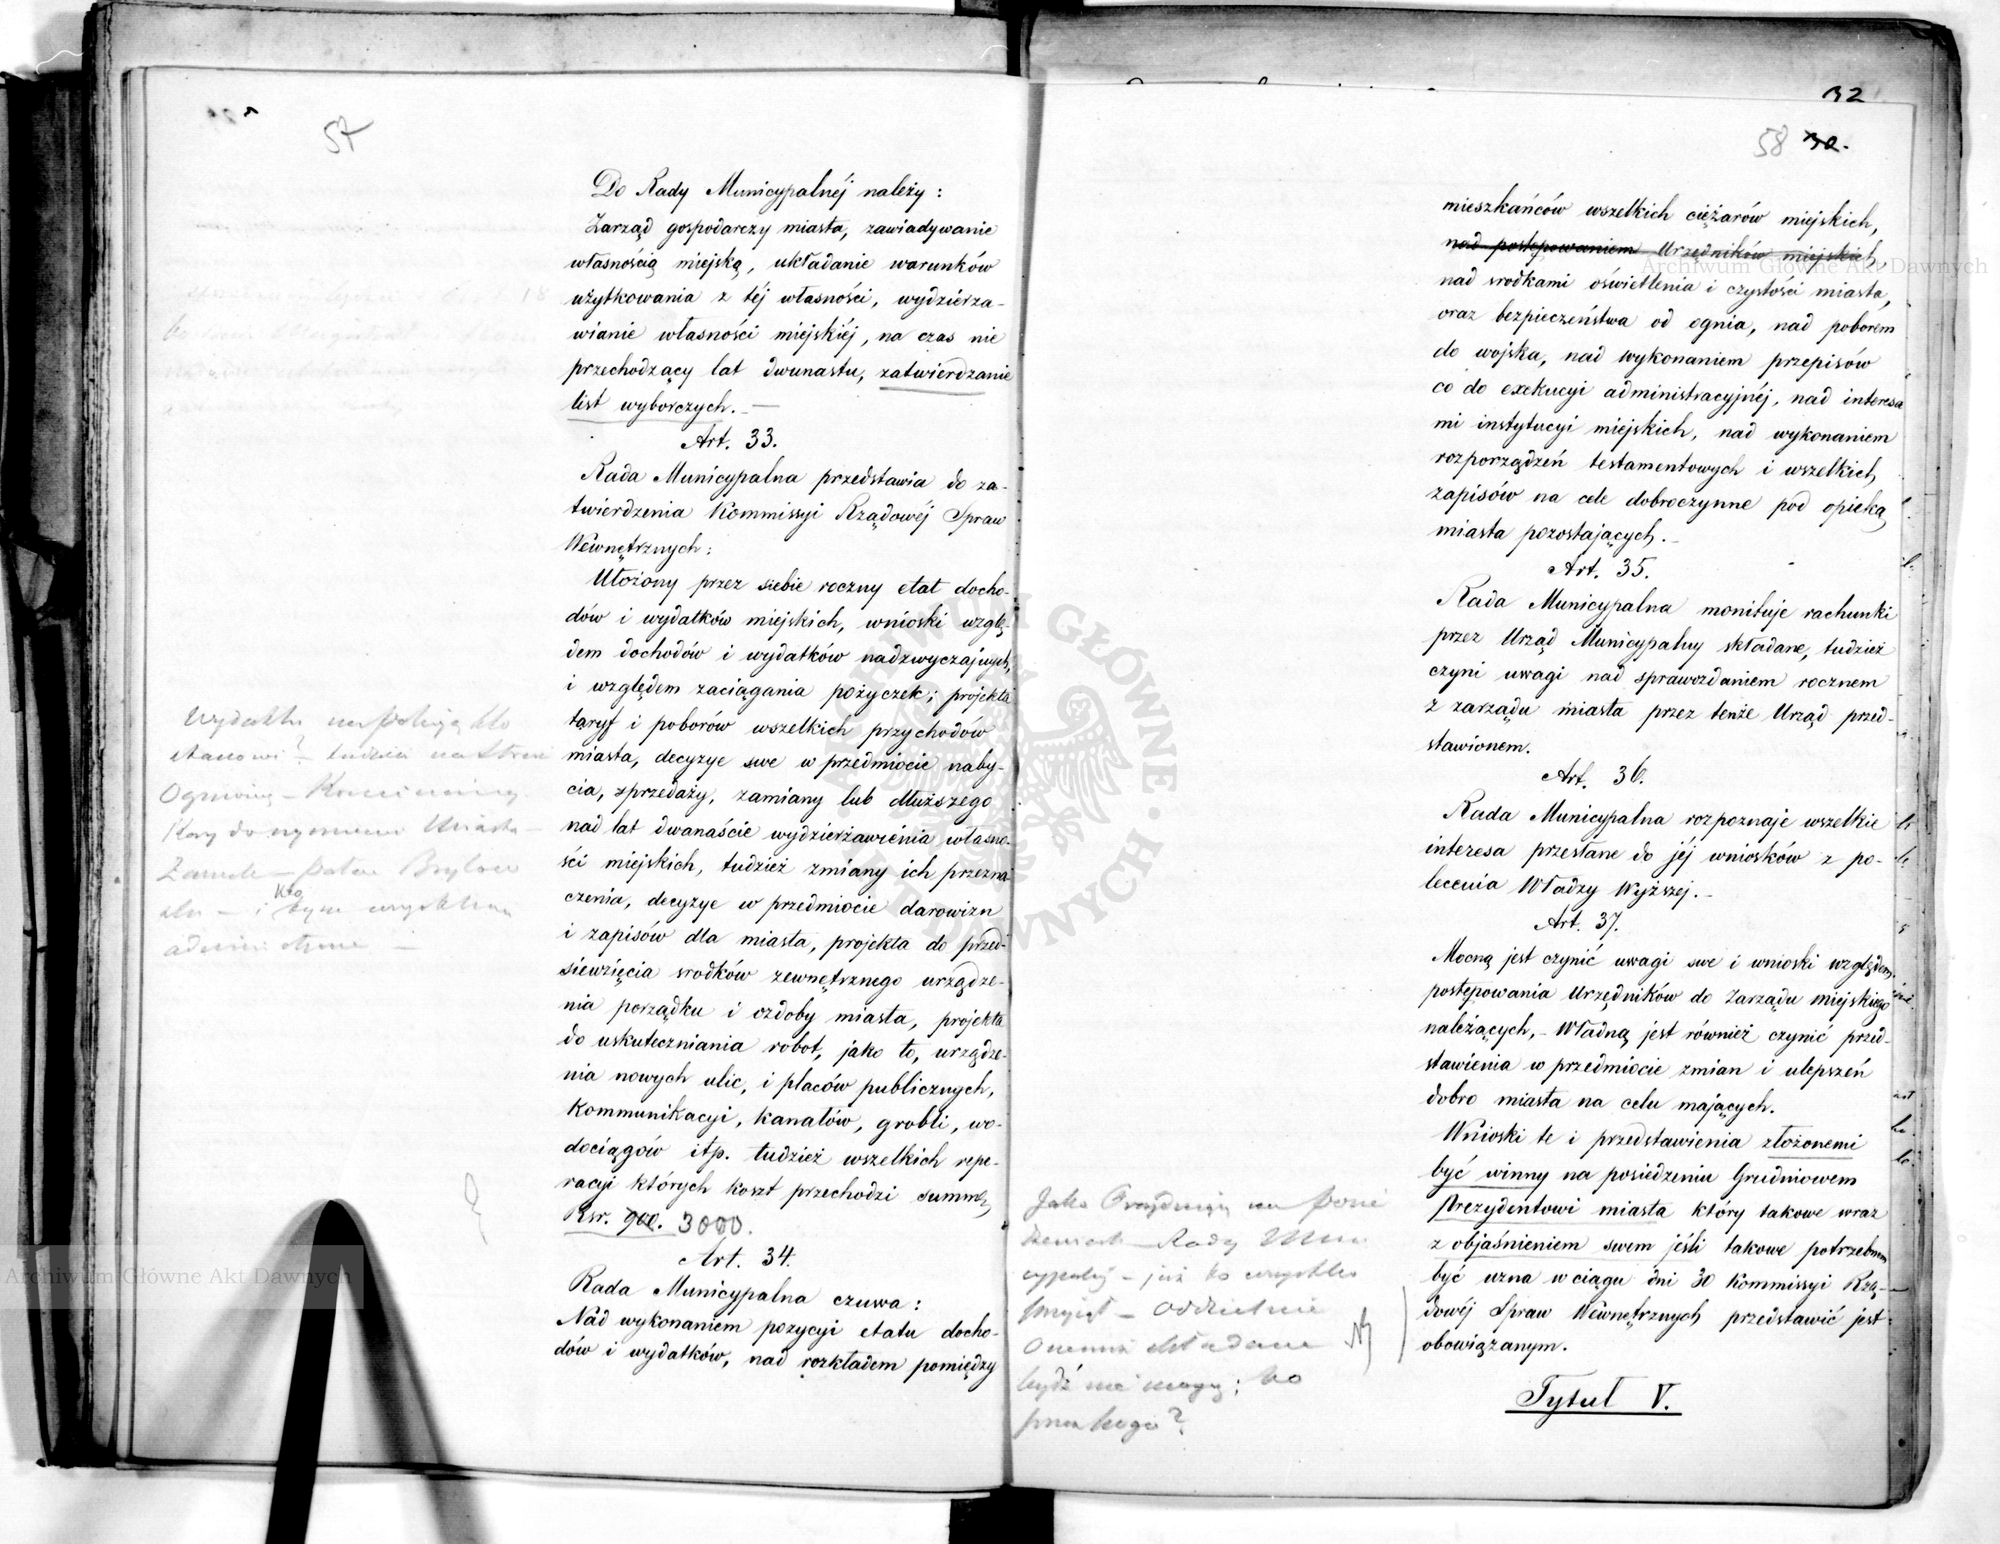 57
Do Rady Municypalnéj należy:
Zarząd gospodarczy miasta, zawiadywanie
własnością miejską, układanie warunków
użytkowania z téj własności, wydzierza-
wianie własności miejskiéj, na czas nie
przechodzący lat dwunastu, zatwierdzanie
list wyborczych. —
Art. 33.
Rada Municypalna przedstawia do za-
twierdzenia Kommissyi Rządowéj Spraw
Wewnętrznych:
Ułożony przez siebie roczny etat docho-
dów i wydatków miejskich, wnioski wzglę-
dem dochodów i wydatków nadzwyczajnych,
i względem zaciągania pożyczek; projekta
taryf i poborów wszelkich przychodów
miasta, decyzye swe w przedmiocie naby-
cia, sprzedaży, zamiany lub dłuższego
nad lat dwanaście wydzierżawienia własno-
ści miejskich, tudzież zmiany ich przezna-
czenia, decyzye w przedmiocie darowizn
i zapisów dla miasta, projekta do przed-
siewzięcia srodków zewnętrznego urządze-
nia porządku i ozdoby miasta, projekta
do uskuteczniania robot, jako to, urządze-
nia nowych ulic, i placów publicznych,
Kommunikacyi, kanałów, grobli, wo-
dociągów itp. tudzież wszelkich repe-
racyi których koszt przechodzi summę
Rsr. 900. 3000.
Art. 34.
Rada Municypalna czuwa:
Nad wykonaniem pozycyi etatu docho-
dów i wydatków, nad rozkładem pomiędzy
stanowi? tudzież na
Ogniową
i
32
58 30.
mieszkańców wszelkich ciężarów miejskich,
nad postępowaniem Urzędników miejskich,
nad srodkami oświetlenia i czystości miasta,
oraz bezpieczeństwa od ognia, nad poborem
do wojska, nad wykonaniem przepisów
co do exekucyi administracyjnéj, nad interesa
mi instytucyi miejskich, nad wykonaniem
rozporządzeń testamentowych i wszelkich
zapisów na cele dobroczynne pod opieką
miasta pozostających. –
Art. 35.
Rada Municypalna monituje rachunki
przez Urząd Municypalny składane, tudzież
czyni uwagi nad sprawozdaniem rocznem
z zarządu miasta przez tenże Urząd przed-
stawionem.
Art. 36.
Rada Municypalna rozpoznaje wszelkie
interesa przesłane do jéj wniosków z po-
lecenia Władzy Wyższej. –
Art. 37.
Mocną jest czynić uwagi swe i wnioski względem
postępowania Urzędników do Zarządu miejskiego
należących, – Władną jest również czynić przed-
stawienia w przedmiocie zmian i ulepszeń
dobro miasta na celu mających.
Wnioski te i przedstawienia złożonemi
być winny na posiedzeniu Grudniowem
Prezydentowi miasta który takowe wraz
z objaśnieniem swem jéśli takowe potrzebnem
być uzna w ciągu dni 30 Kommissyi Rzą-
dowéj Spraw Wewnętrznych przedstawić jest
obowiązanym.
Tytuł V.
już to wszystko
oddzielnie
być nie mogą; bo
przez kogo?
Archiwum Główne Akt Dawnych
Archiwum Główne Akt Dawnych
ARCHIWUM GŁÓWNE AKT DAWNYCH